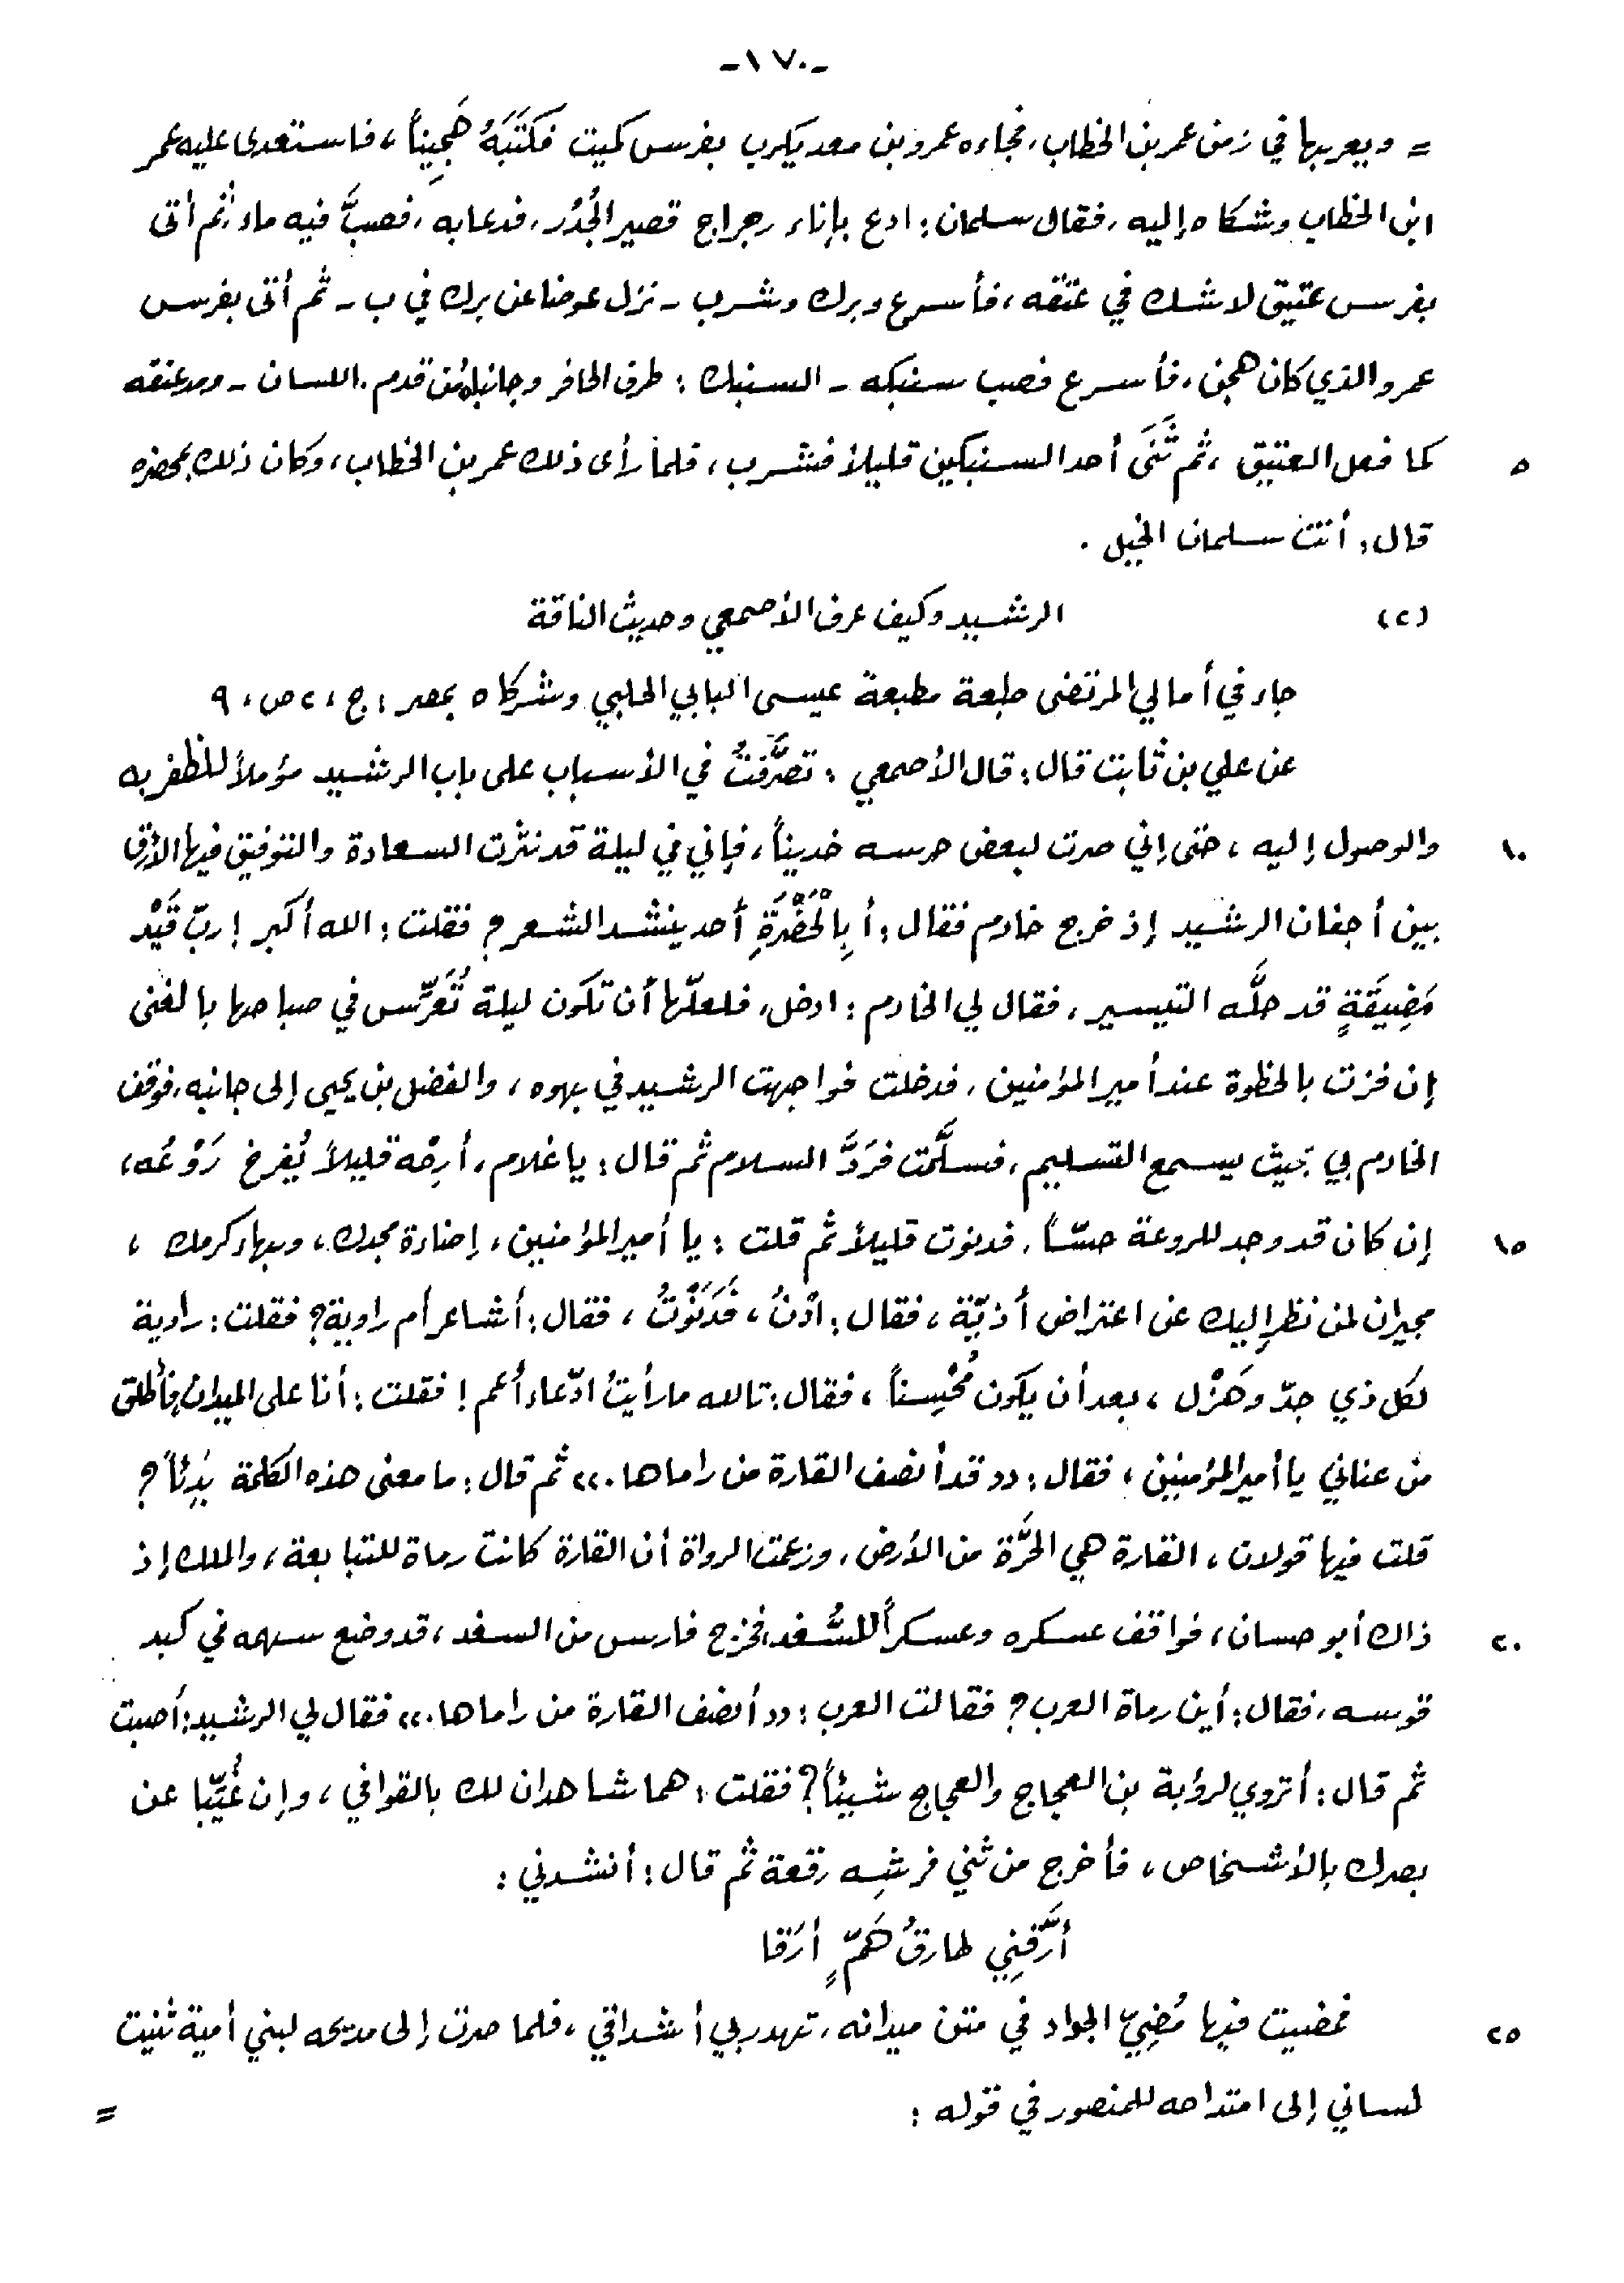 -١٧٠-
= ويعربها في زمن عمر بن الخطاب، فجاءه عمرو بن معد يكرب بفرس كميت فكَتَبَهُ هَجِيناً، فاستعدى عليه عمر
ابن الخطاب وشكاه إليه، فقال سلمان: ادع بإناء رجراج قصير الجُدُر، فدعا به، فصبَّ فيه ماء، ثم أتى
بفرس عتيق لا شك في عتقه، فأسرع وبرك وشرب - نزل عوضا عن برك في ب - ثم أتى بفرس
عمرو الذي كان هجن، فأسرع فصب سنبكه - السنبك: طرف الحافر وجانباه من قدم، اللسان - ومد عنقه
٥ كما فعل العتيق، ثم ثَنَى أحد السنبكين قليلاً فشرب، فلما رأى ذلك عمر بن الخطاب، وكان ذلك بمحضره
قال: أنت سلمان الخيل.
(٢) الرشيد وكيف عرف الأصمعي وحديث الناقة
جاء في أمالي المرتضى طبعة مطبعة عيسى البابي الحلبي وشركاه بمصر: ج، ٢ ص، ٩
عن علي بن ثابت قال: قال الأصمعي: تصَرَّفتُ في الأسباب على باب الرشيد مؤملاً للظفر به
١٠ والوصول إليه، حتى إني صرت لبعض حرسه خديناً، فإني في ليلة قد نثرت السعادة والتوفيق فيها الأرق
بين أجفان الرشيد إذ خرج خادم فقال: أبِالْحَضْرَةِ أحد ينشد الشعر؟ فقلت: الله أكبر! ربّ قَيْد
مَضِيقَةٍ قد حلَّه التيسير، فقال لي الخادم: ادخل، فلعلّها أن تكون ليلة تُعَرِّس في صباحها بالغنى
إن فزت بالحظوة عند أمير المؤمنين، فدخلت فواجهت الرشيد في بهوه، والفضل بن يحيى إلى جانبه، فوقف
الخادم بي بحيث يسمع التسليم، فسلَّمت فرَدَّ السلام ثم قال: يا غلام، أرِحْه قليلاً يُفرخ رَوْعُه،
١٥ إن كان قد وجد للروعة حسّاً، فدنوت قليلاً ثم قلت: يا أمير المؤمنين، إضاءة مجدك، وبهاء كرمك،
مجيران لمن نظر إليك عن اعتراض أذيّة، فقال: ادْنُ، فَدَنَوْتُ، فقال: أشاعر أم راوية؟ فقلت: راوية
لكل ذي جدّ وهَزْل، بعد أن يكون مُحْسِناً، فقال: تالله ما رأيتُ ادّعاء أعم! فقلت: أنا على الميدان، فأطلق
من عناني يا أمير المؤمنين، فقال: «قد أنصف القارة من راماها.» ثم قال: ما معنى هذه الكلمة بَدِئاً؟
قلت فيها قولان، القارة هي الحَرَّة من الأرض، وزعمت الرواة أن القارة كانت رماة للتبابعة، والملك إذ
٢٠ ذاك أبو حسان، فواقف عسكره وعسكراً للسُّغد، فخرج فارس من السغد، قد وضع سهمه في كبد
قوسه، فقال: أين رماة العرب؟ فقالت العرب: «أنصف القارة من راماها.» فقال لي الرشيد: أصبت
ثم قال: أتروي لرؤبة بن العجاج والعجاج شيئاً؟ فقلت: هما شاهدان لك بالقوافي، وإن غُيِّبا عن
بصرك بالأشخاص، فأخرج من ثني فرشِه رقعة ثم قال: أنشدني:
أرَّقَنِي طارقُ هَمٍّ أرَقا
٢٥ فمضيت فيها مُضِيّ الجواد في متن ميدانه، تهدر بي أشداقي، فلما صرت إلى مديحه لبني أمية ثنيت
لساني إلى امتداحه للمنصور في قوله: =